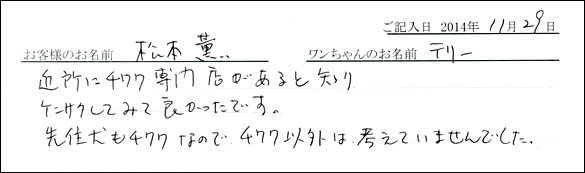 ご記入日 2014年 11月 29日
お客様のお名前 松本 薫 ワンちゃんのお名前 テリー
近所にチワワ専門店があると知り
ケンサクしてみて良かったです。
先住犬もチワワなので チワワ以外は考えていませんでした.